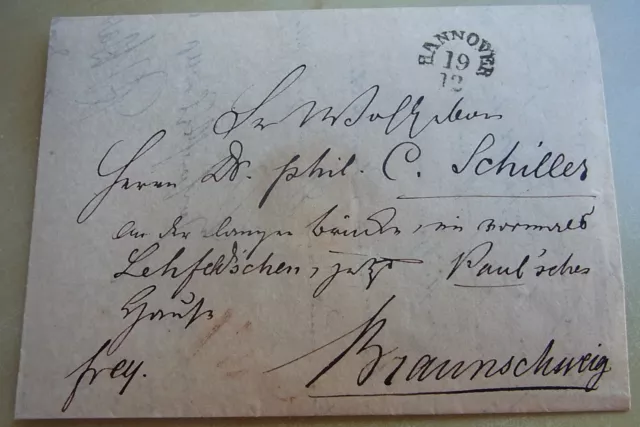 HANNOVER
19
12
Sr Wohlgeboren
Herrn Dr. phil. C. Schiller
An der langen Brücke, im vormals
Lehfeldt'schen, jetzt Raul'sches
Hause
frey.
Braunschweig